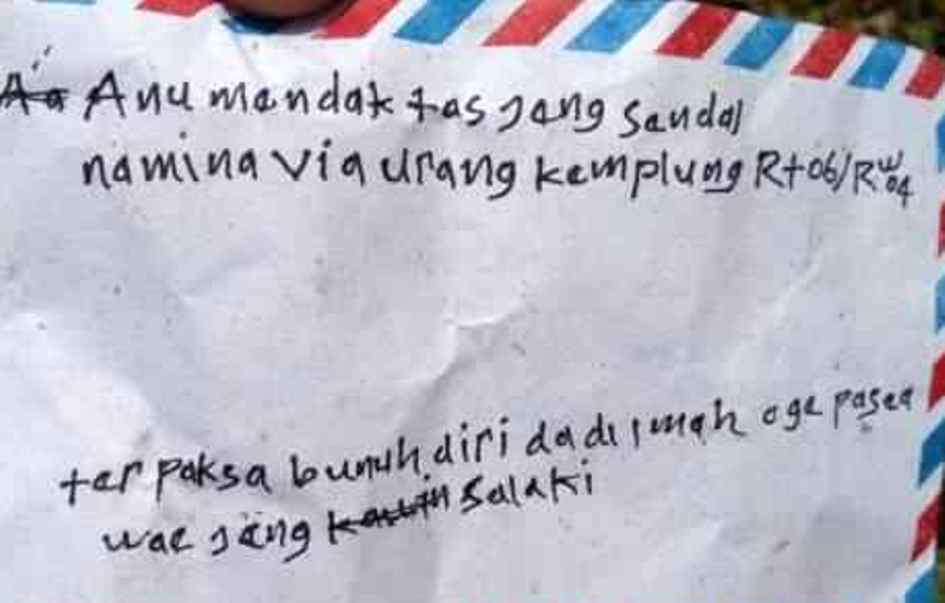 Anu mendak tas jang sendal
namina via urang kemplung Rt 06/RW 04
ter paksa bunuh diri da di imah oge pasea
wae jeng salaki